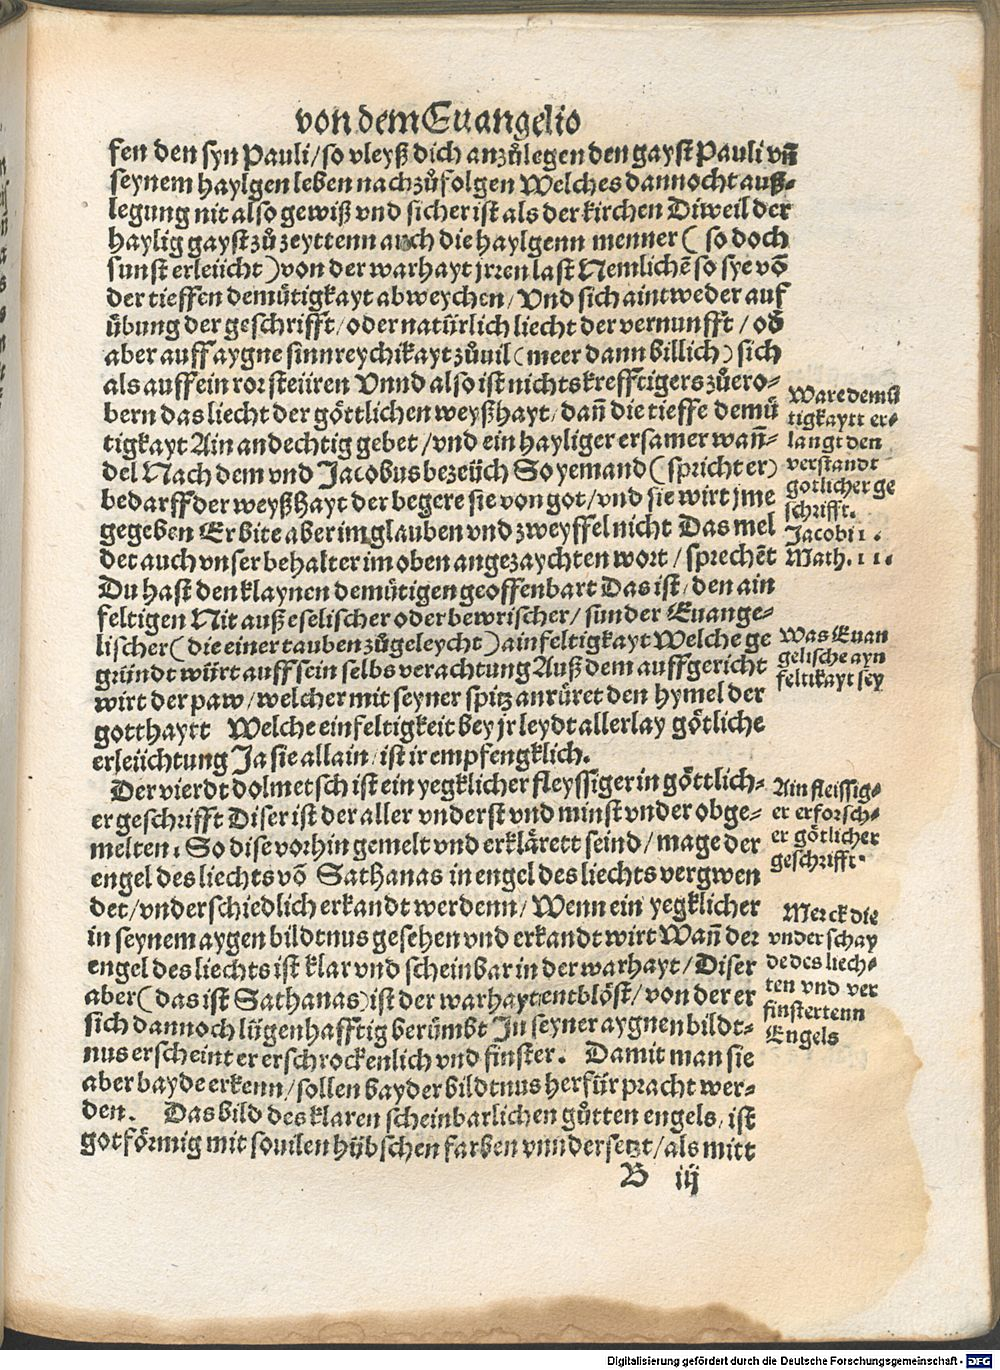 von dem Euangelio
fen den syn Pauli/ so vleyß dich anzůlegen den gayst Pauli vñ
seynem haylgen leben nachzůfolgen Welches dannocht auß⸗
legung nit also gewiß vnd sicher ist als der kirchen Diweil der
haylig gayst zů zeyttenn auch die haylgenn menner ( so doch
sunst erleücht ) von der warhayt jrren last Nemlichē so sye vō
der tieffen demütigkayt abweychen/ Vnd sich aintweder auf
übung der geschrifft/ oder natürlich liecht der vernunfft / od̕
aber auff aygne sinnreychikayt zůuil ( meer dann billich ) sich
als auff ein ror steüren Vnnd also ist nichts krefftigers zůero⸗
bern das liecht der göttlichen weyßhayt/ dañ die tieffe demü
tigkayt Ain andechtig gebet / vnd ein hayliger ersamer wañ⸗
del Nach dem vnd Jacobus bezeüch So yemand ( spricht er )
bedarff der weyßhayt der begere sie von got/ vnd sie wirt jme
gegeben Er bite aber im glauben vnd zweyffel nicht Das mel
det auch vnser behalter im oben angezaychten wort / sprechēt
Du hast den klaynen demütigen geoffenbart Das ist/ den ain
feltigen Nit auß eselischer oder bewrischer/ sunder Euange⸗
lischer ( die einer tauben zůgeleycht ) ainfeltigkayt Welche ge
gründt würt auff sein selbs verachtung Auß dem auffgericht
wirt der paw/ welcher mit seyner spitz anrüret den hymel der
gotthaytt Welche einfeltigkeit bey jr leydt allerlay götliche
erleüchtung Ja sie allain/ ist ir empfengklich.
Der vierdt dolmetsch ist ein yegklicher fleyssiger in göttlich⸗
er geschrifft Diser ist der aller vnderst vnd minst vnder obge⸗
melten. So dise vorhin gemelt vnd erklärett seind/ mage der
engel des liechts vō Sathanas in engel des liechts vergwen
det/ vnderschiedlich erkandt werdenn/ Wenn ein yegklicher
in seynem aygen bildtnus gesehen vnd erkandt wirt Wañ der
engel des liechts ist klar vnd scheinbar in der warhayt/ Diser
aber ( das ist Sathanas ) ist der warhayt entblöst/ von der er
sich dannoch lügenhafftig berümbt In seyner aygnen bildt⸗
nus erscheint er erschrockenlich vnd finster. Damit man sie
aber bayde erkenn/ sollen bayder bildtnus herfür pracht wer⸗
den. Das bild des klaren scheinbarlichen gůtten engels, ist
gotförmig mit souilen hübschen farben vnndersetzt/ als mitt
B iij
Ware demü
tigkaytt er⸗
langt den
verstandt
gotlicher ge
schrifft.
Jacobi 1.
Math. 11.
Was Euan
gelische ayn
feltikayt sey
Ain fleissig⸗
er erforsch⸗
er götlicher
geschrifft.
Merck die
vnderschay
de des liech⸗
ten vnd ver
finstertenn
Engels
Digitalisierung gefördert durch die Deutsche Forschungsgemeinschaft - DFG